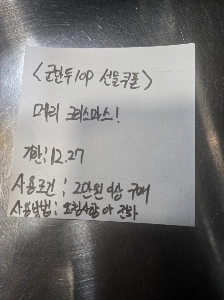 <군만두 10P 선물쿠폰>
메리 크리스마스!
기한: 12.27
사용조건 : 2만원 이상 구매
사용방법 : 요청사항 or 전화